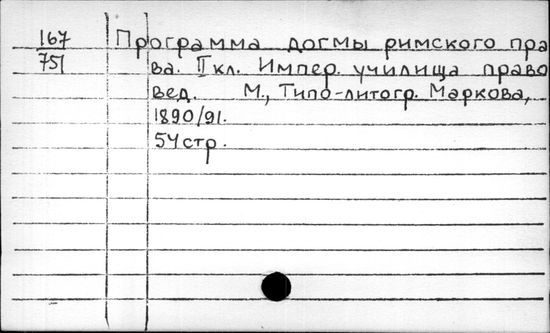 167 Программа догмы римского пра
751 ва. II кл. Импер. училища право
вед. М., Типо-литогр. Маркова,
1890/91.
54 стр.